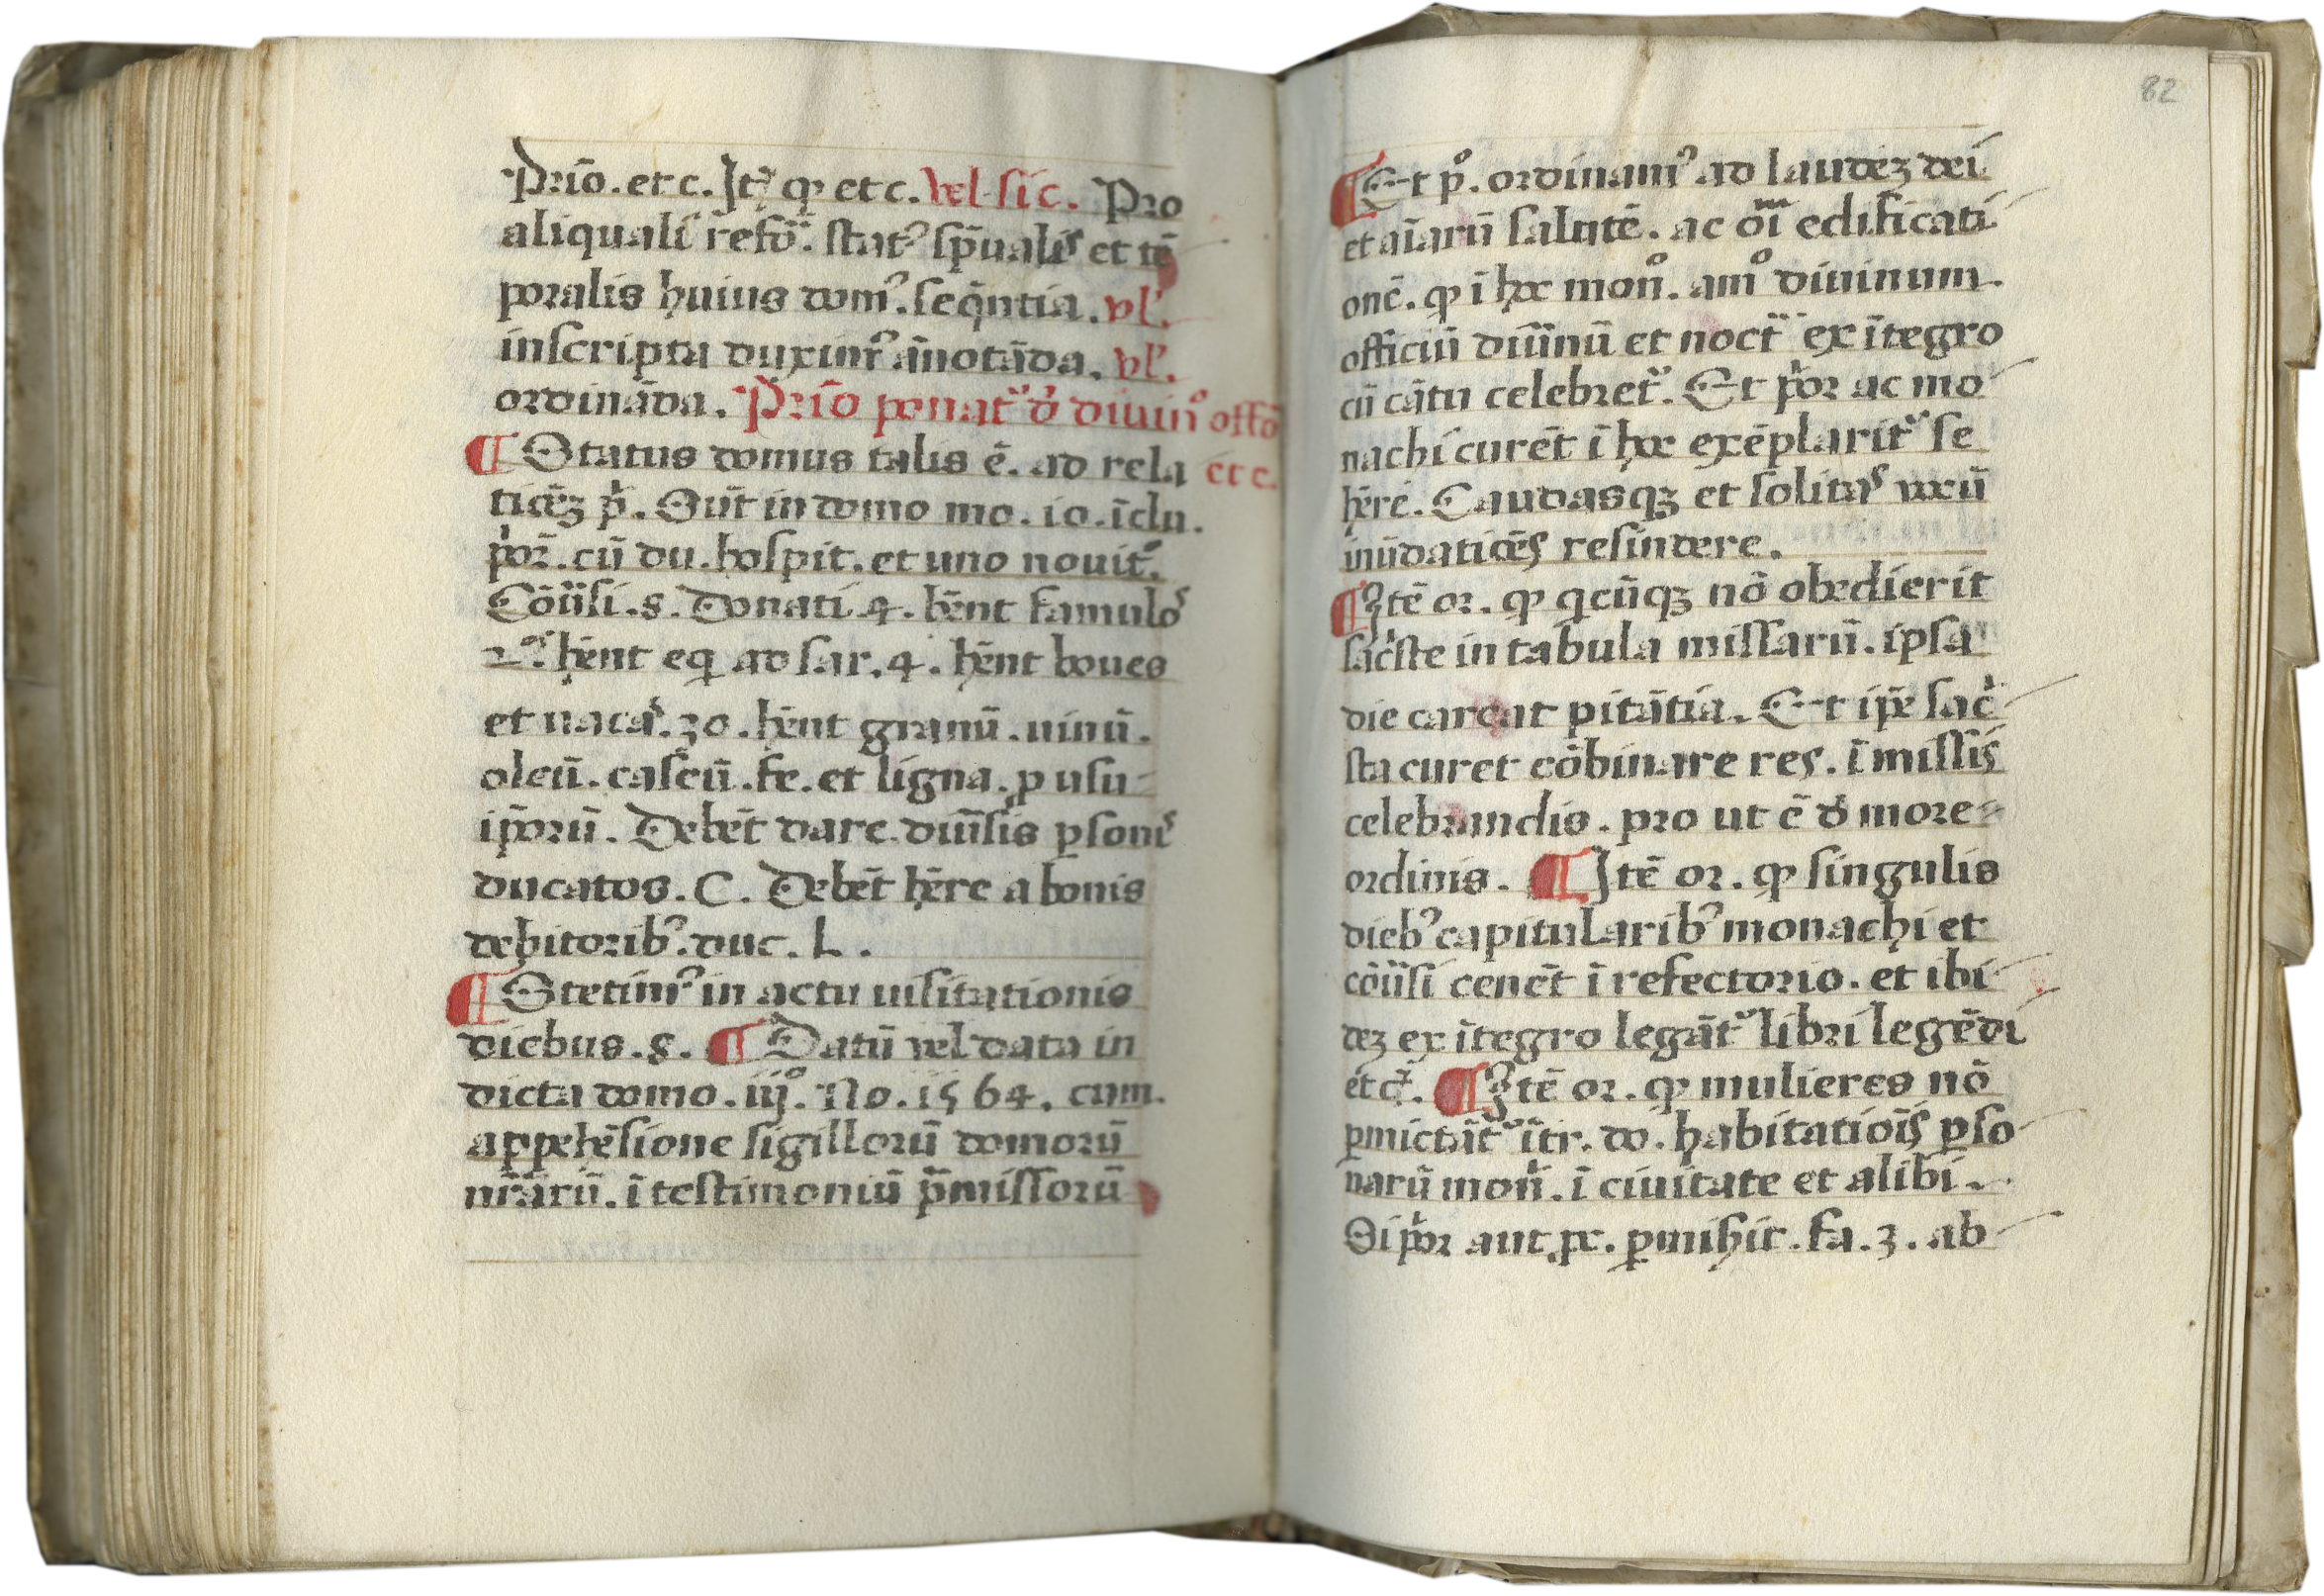 Prīo. etc. Itꝫ ꝙ etc. Vel sic. Pro
aliquali refōe. statꝰ sp̄ualis et tē
poralis huius domꝰ. seq̄ntia. vl'.
inscripta duximꝰ ān̄otāda. vl'.
ordināda. Prīo ponat᷑ d̄ diuinº offō
¶ Status domus talis ē. ad rela etc.
ticēꝫ p̄. Sūt in domo mo. io. īclu.
p̄or̄. cū du. hospit. et uno nouit.
Cōūsi. 8. Donati 4. hēnt famulos
hēnt eq ad sar. 4. hēnt boues
et uacas. 30. hēnt granū. uinū.
oleū. caseū. fe. et ligna. p usu
ip̄orū. Debēt dare diūsis ꝑsonis
ducatos. C. Debēt hēre a bonis
debitoribꝰ. duc. L.
¶ Stetimꝰ in actu uisitationis
diebus. 8. ¶ Datū vel data in
dicta domo. iijº. No. 1564. cum
appehēsione sigillorū domorū
nr̄arū. ī testimoniū p̄missorū
82
¶ Et pº. ordinamꝰ ad laudeꝫ dei
et aīarū salutē. ac oīm edificati
onē. ꝙ ī hoc monº. amº diuinum
officiū diūnū et noct᷑ ex ītegro
cū cātu celebret᷑. Et p̄or ac mo
nachi curēt ī hoc exēplarit᷑ se
hēre. Caudasqꝫ et solitas uocū
inūdaticēs resindere.
¶ Itē or. ꝙ qcūqꝫ nō obedierit
sac̄ste in tabula missarū. ipsa
die careat pitātia. Et ip̄e sac̄
sta curet cōbinare res. ī missis
celebrandis. pro ut ē d̄ more
ordinis. ¶ Itē or. ꝙ singulis
diebꝰ capitularibꝰ monachi et
cōūsi cenēt ī refectorio. et ibi
deꝫ ex ītegro legāt᷑ libri legēdi
etcꝫ. ¶ Itē or. ꝙ mulieres nō
ꝑmictāt᷑ ītr. do. habitatiōīs ꝑso
narū mon̄. ī ciuitate et alibi.
Si p̄or aut pc. ꝑmisit. fa. 3. ab